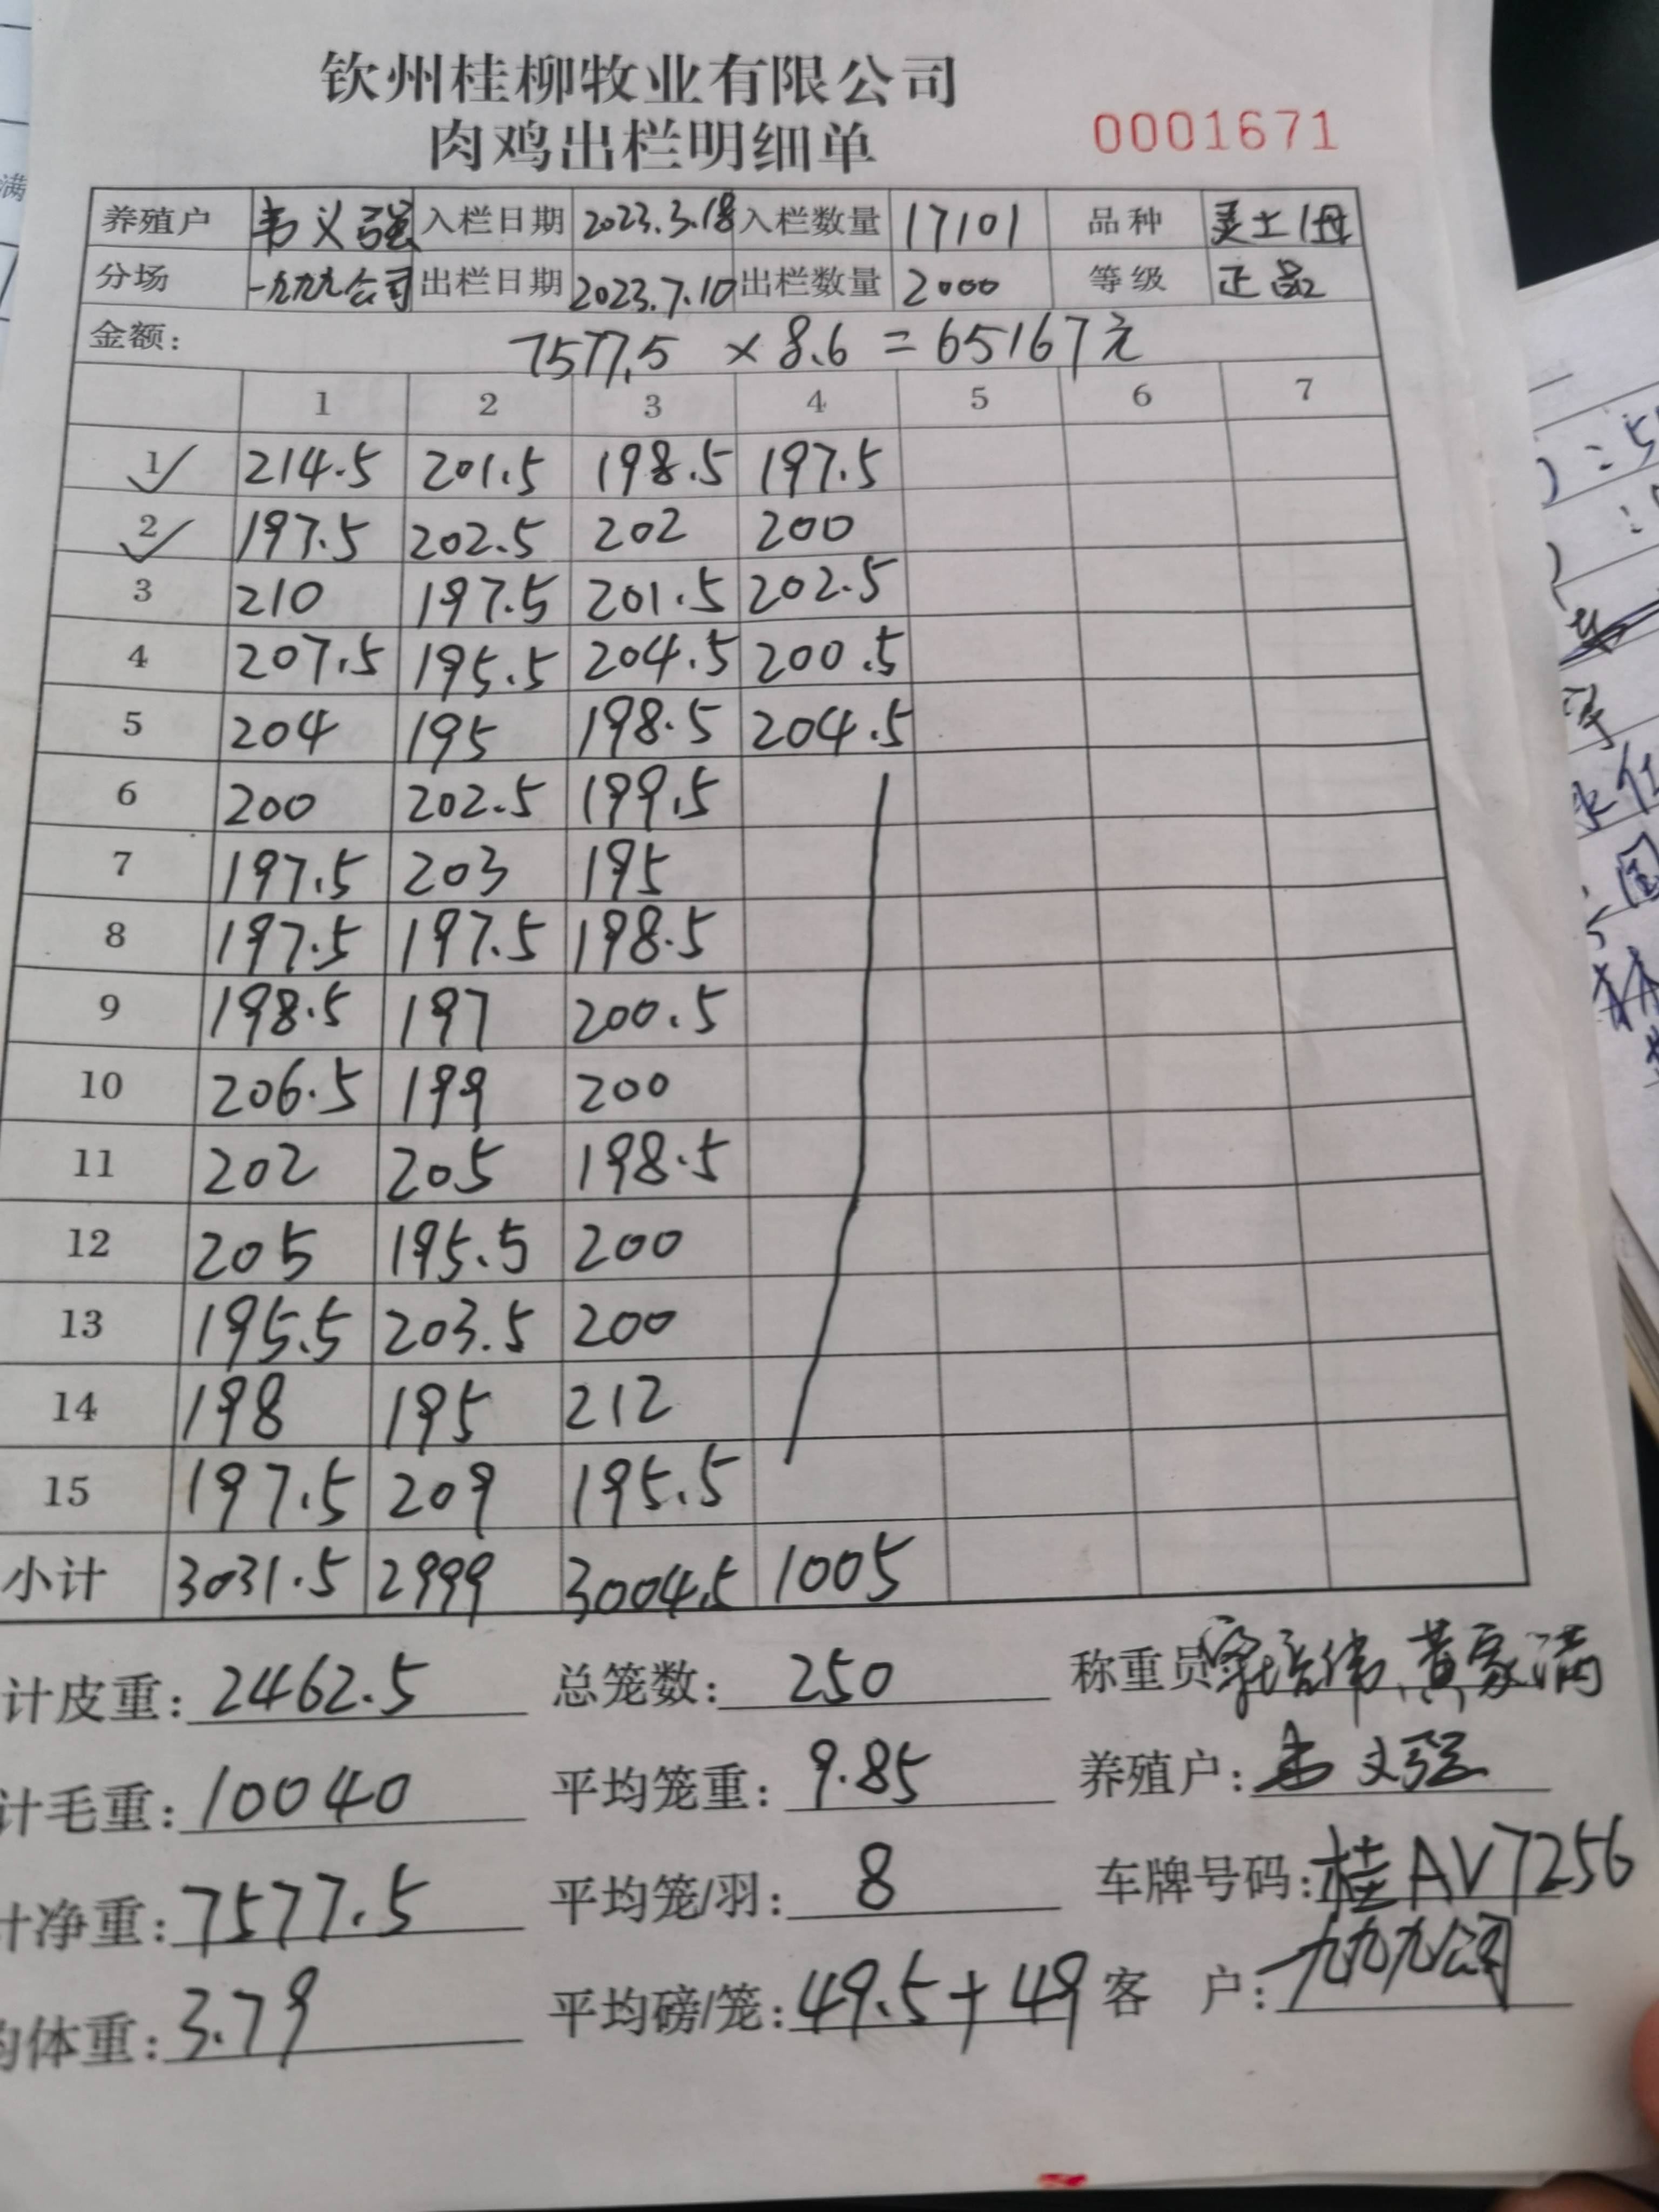 钦州桂柳牧业有限公司
肉鸡出栏明细单 0001671
养殖户 韦义强 入栏日期 2023.3.18 入栏数量 17101 品种 土1母
分场 一九九九公司 出栏日期 2023.7.10 出栏数量 2000 等级 正品
金额: 7577.5 × 8.6 = 65167元
1 2 3 4 5 6 7
1 214.5 201.5 198.5 197.5
2 197.5 202.5 202 200
3 210 197.5 201.5 202.5
4 207.5 195.5 204.5 200.5
5 204 195 198.5 204.5
6 200 202.5 199.5
7 197.5 203 195
8 197.5 197.5 198.5
9 198.5 197 200.5
10 206.5 199 200
11 202 205 198.5
12 205 195.5 200
13 195.5 203.5 200
14 198 195 212
15 197.5 209 195.5
小计 3031.5 2999 3004.5 1005
计皮重: 2462.5 总笼数: 250 称重员 黄家满
计毛重: 10040 平均笼重: 9.85 养殖户: 韦义强
计净重: 7577.5 平均笼/羽: 8 车牌号码: 桂AV7256
均体重: 3.79 平均磅/笼: 49.5+49 客户: 九九九公司